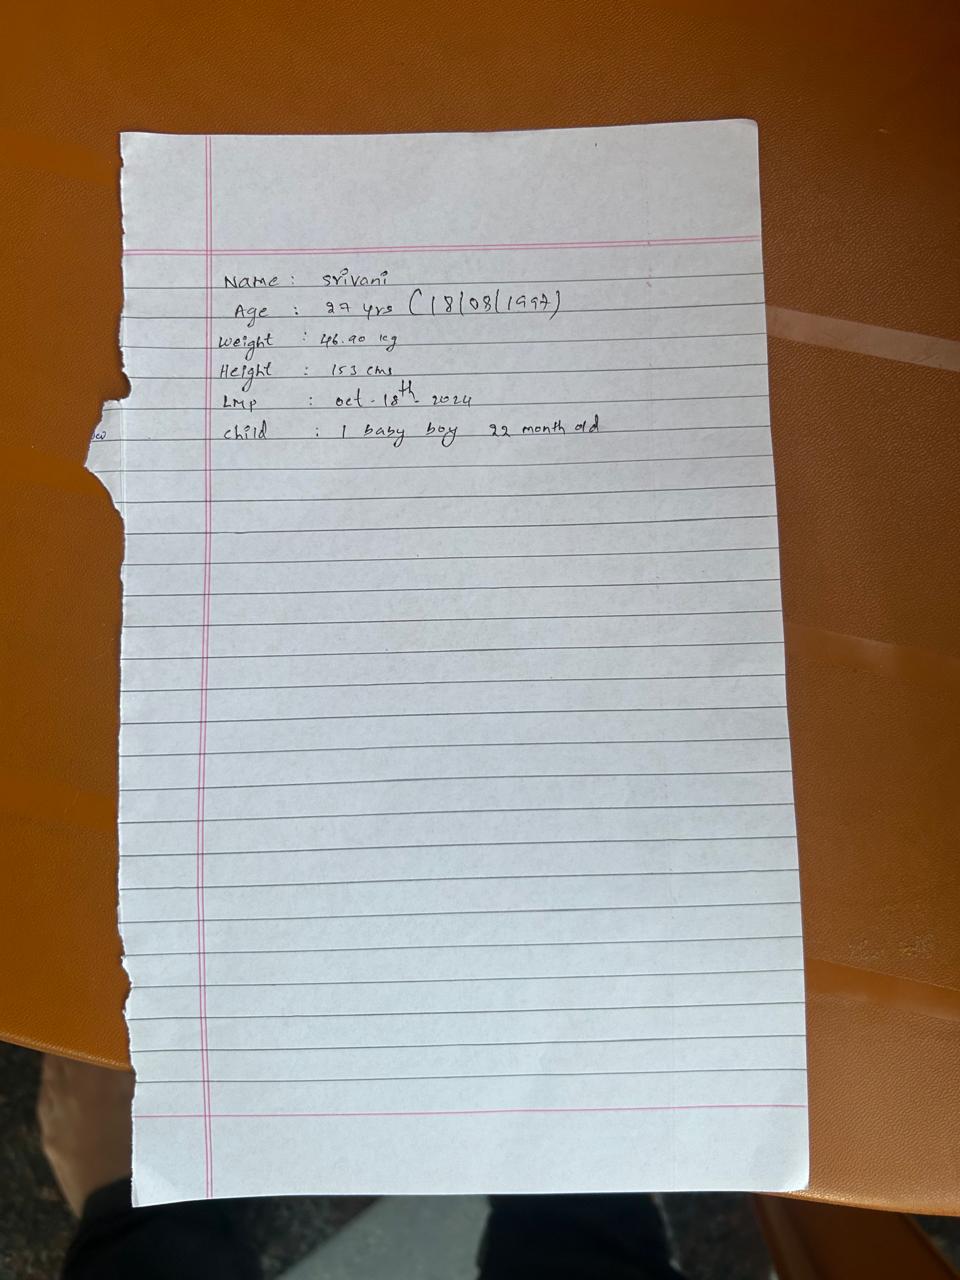 Name : Srivani
Age : 27 yrs (18/08/1997)
Weight : 46.90 kg
Height : 153 cms
LMP : Oct - 18th - 2024
Child : 1 baby boy 22 month old